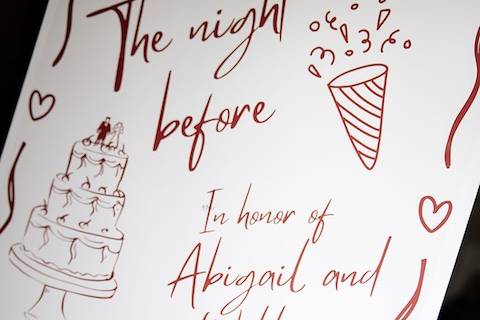 The night
before
In honor of
Abigail and